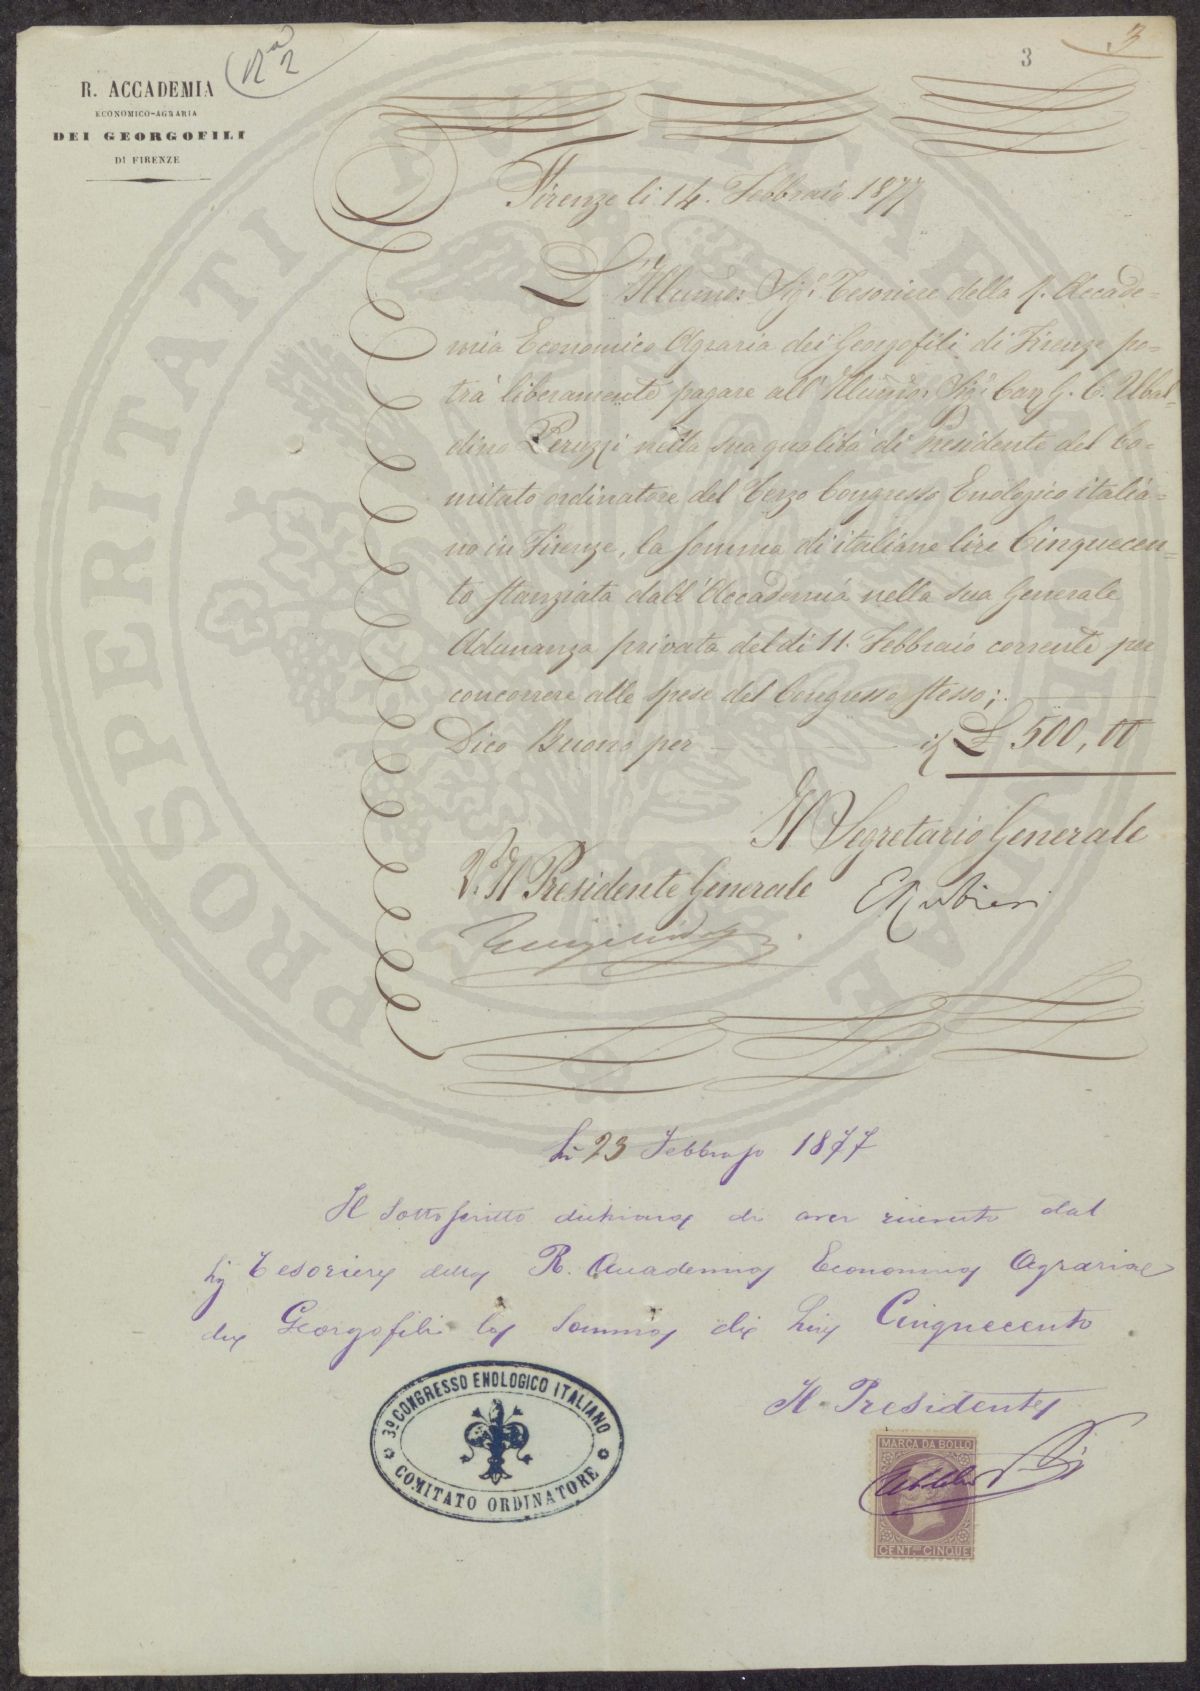 Nº 2
3
3
R. ACCADEMIA
ECONOMICO-AGRARIA
DEI GEORGOFILI
DI FIRENZE
Firenze li 14. Febbraio 1877
L'Illumo: Sigr. Tesoriere della R. Accade=
mia Economico Agraria dei Georgofili di Firenze po=
trà liberamente pagare all'Illumo: Sigr. G. C. Ubal=
dino Peruzzi nella sua qualità di Presidente del Co=
mitato ordinatore del Terzo Congresso Enologico italia=
no in Firenze, la somma di italiane lire Cinquecen=
to stanziata dall'Accademia nella sua Generale
Adunanza privata del dì 11. Febbraio corrente per
concorrere alle spese del Congresso stesso;
Dico Buono per £ 500,00
Il Segretario Generale
V. Il Presidente Generale
ERubieri
Li 23 Febbrajo 1877
Il sottoscritto dichiara di aver ricevuto dal
Sig Tesoriere della R. Accademia Economica Agraria
dei Georgofili la somma di Lire Cinquecento
Il Presidente
3º CONGRESSO ENOLOGICO ITALIANO
COMITATO ORDINATORE
MARCA DA BOLLO
CENT.MI CINQUE
PROSPERITATI PUBLICAE AUGENDAE